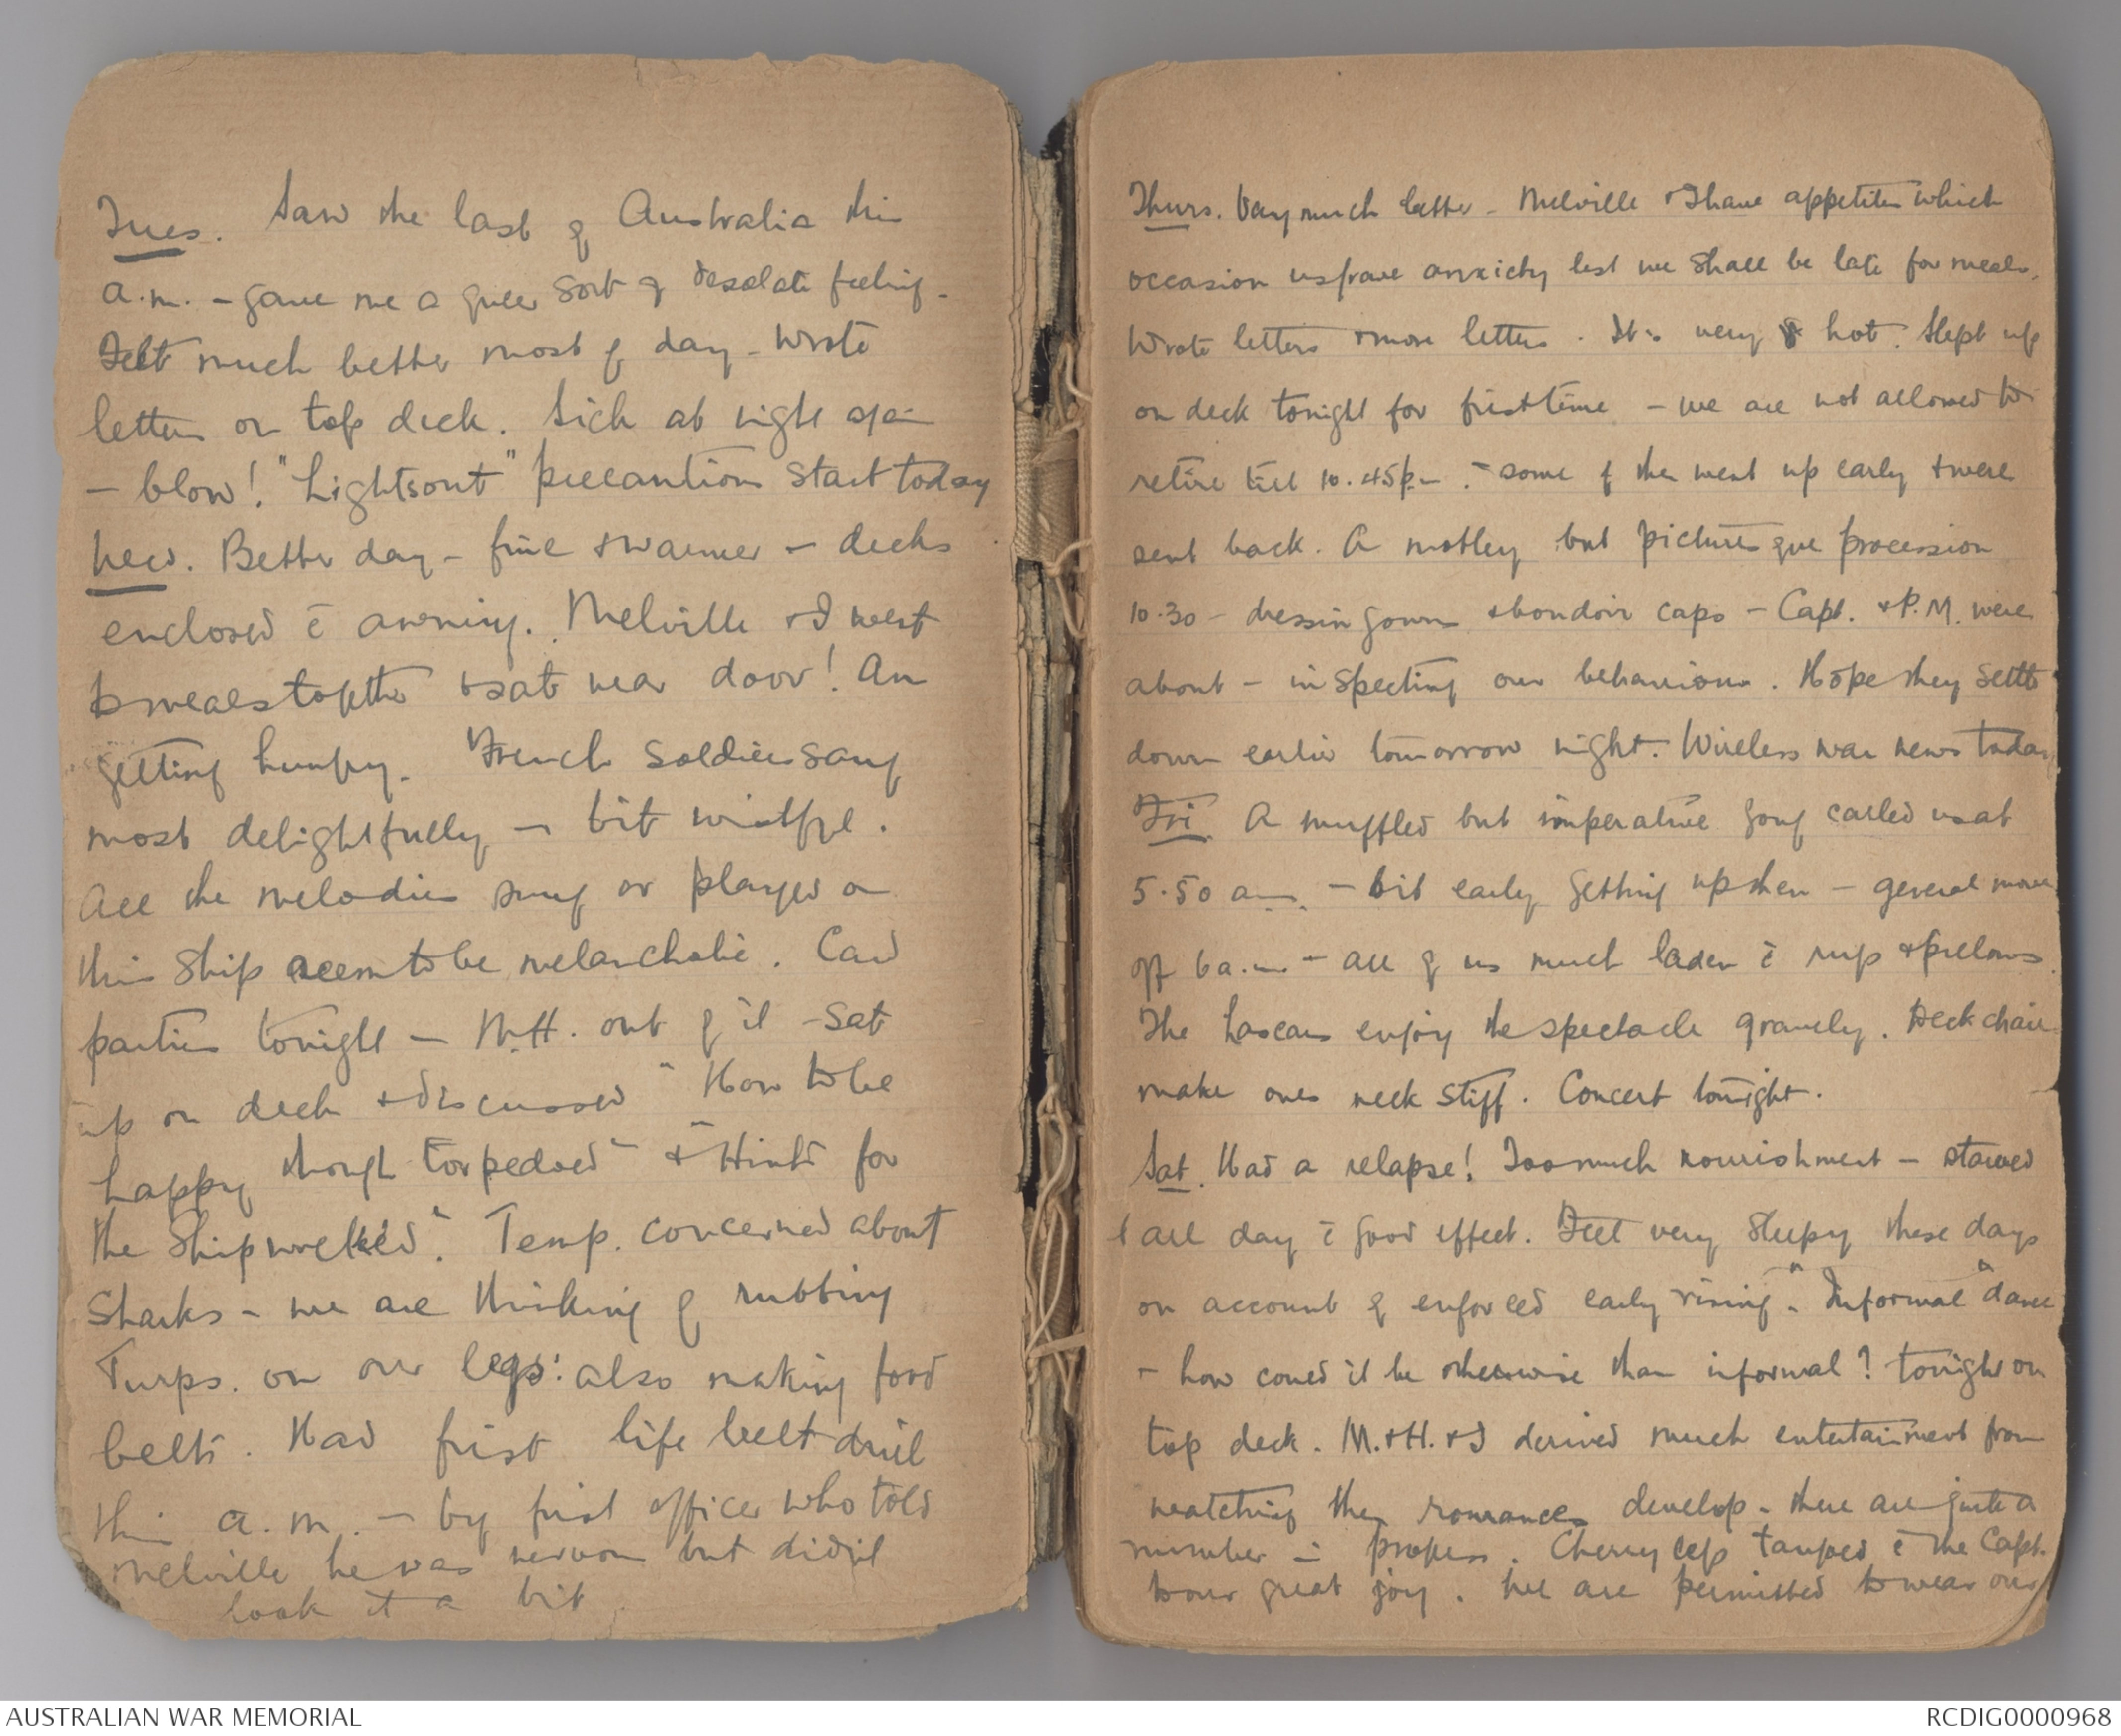 Tues. Saw the last of Australia this
a.m. - gave me a queer sort of desolate feeling.
Felt much better most of day - wrote
letters on top deck. Sick at night again
- blow! "Lights out" precautions start today
Wed. Better day - fine & warmer - decks
enclosed c̄ awning. Melville & I went
to meals together & sat near door! Am
getting hungry. French soldiers sang
most delightfully - bit wistful.
All the melodies sung or played on
this ship seem to be melancholic. Card
parties tonight - M.H. out of it - sat
up on deck & discussed "How to be
happy though torpedoed" & "Hints for
the Shipwrecked". Temp. concerned about
sharks - we are thinking of rubbing
Turps. on our legs: also making food
belts. Had first life belt drill
this a.m. - by first officer who told
Melville he was nervous but didn't
look it a bit
Thurs. Very much better - Melville & I have appetites which
occasion us grave anxiety lest we shall be late for meals.
Wrote letters & more letters. It is very hot. Slept up
on deck tonight for first time - we are not allowed to
retire till 10.45 p.m. - some of them went up early & were
sent back. A motley but picturesque procession
10.30 - dressing gowns & boudoir caps - Capt. & P.M. were
about - inspecting our behaviour. Hope they settle
down earlier tomorrow night. Wireless war news today
Fri. A muffled but imperative gong called us at
5.50 a.m. - bit early getting up then - general move
off 6 a.m. - all of us much laden c̄ rugs & pillows.
The Lascars enjoy the spectacle gravely. Deck chairs
make ones neck stiff. Concert tonight.
Sat. Had a relapse! Too much nourishment - starved
all day c̄ good effect. Feel very sleepy these days
on account of enforced early rising. "Informal" dance
- how could it be otherwise than informal? tonight on
top deck. M. & H. & I derived much entertainment from
watching the romances develop - there are quite a
number in progress. Cherry leg tangoed c̄ the Capt.
to our great joy. We are permitted to wear our
AUSTRALIAN WAR MEMORIAL
RCDIG0000968